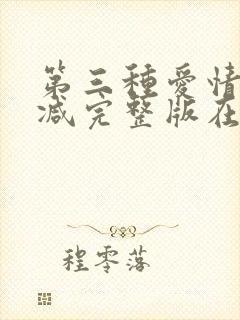 第三種愛情
減完整版在
程零落